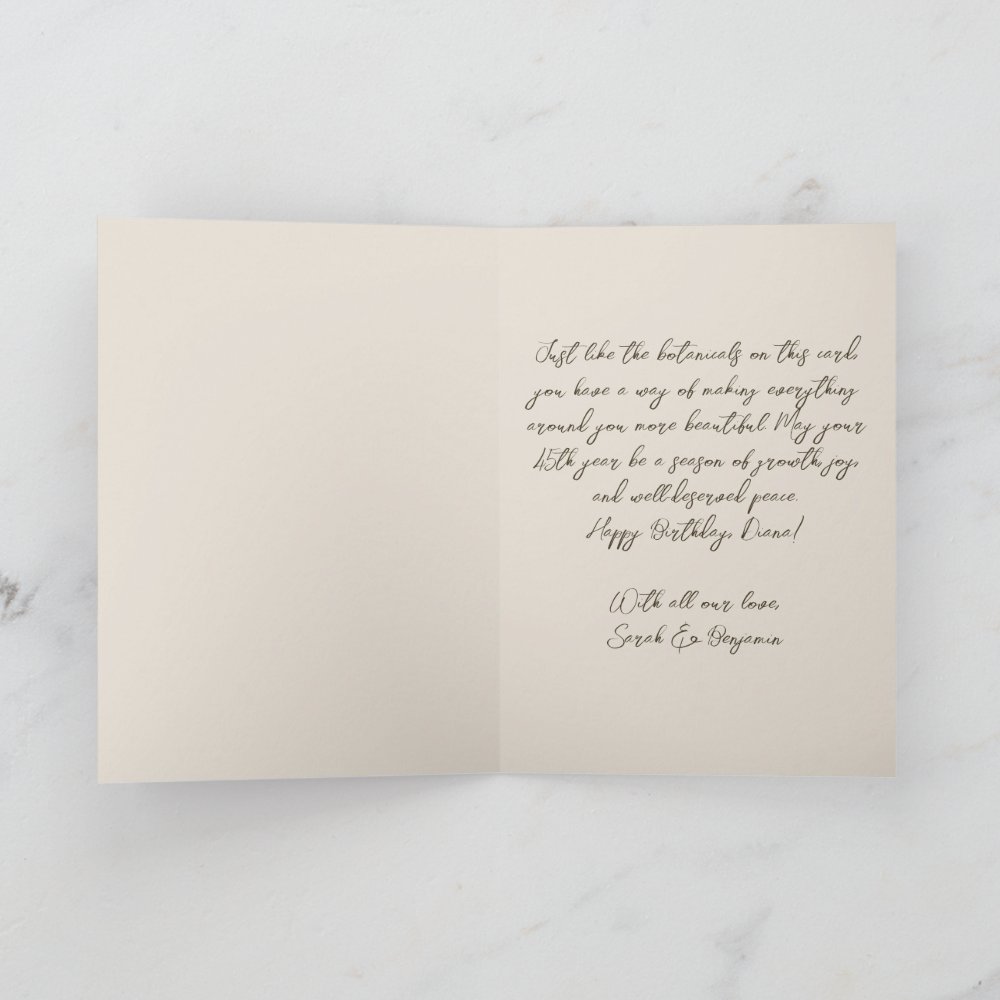 Just like the botanicals on this card,
you have a way of making everything
around you more beautiful. May your
45th year be a season of growth, joy,
and well-deserved peace.
Happy Birthday, Diana!
With all our love,
Sarah & Benjamin